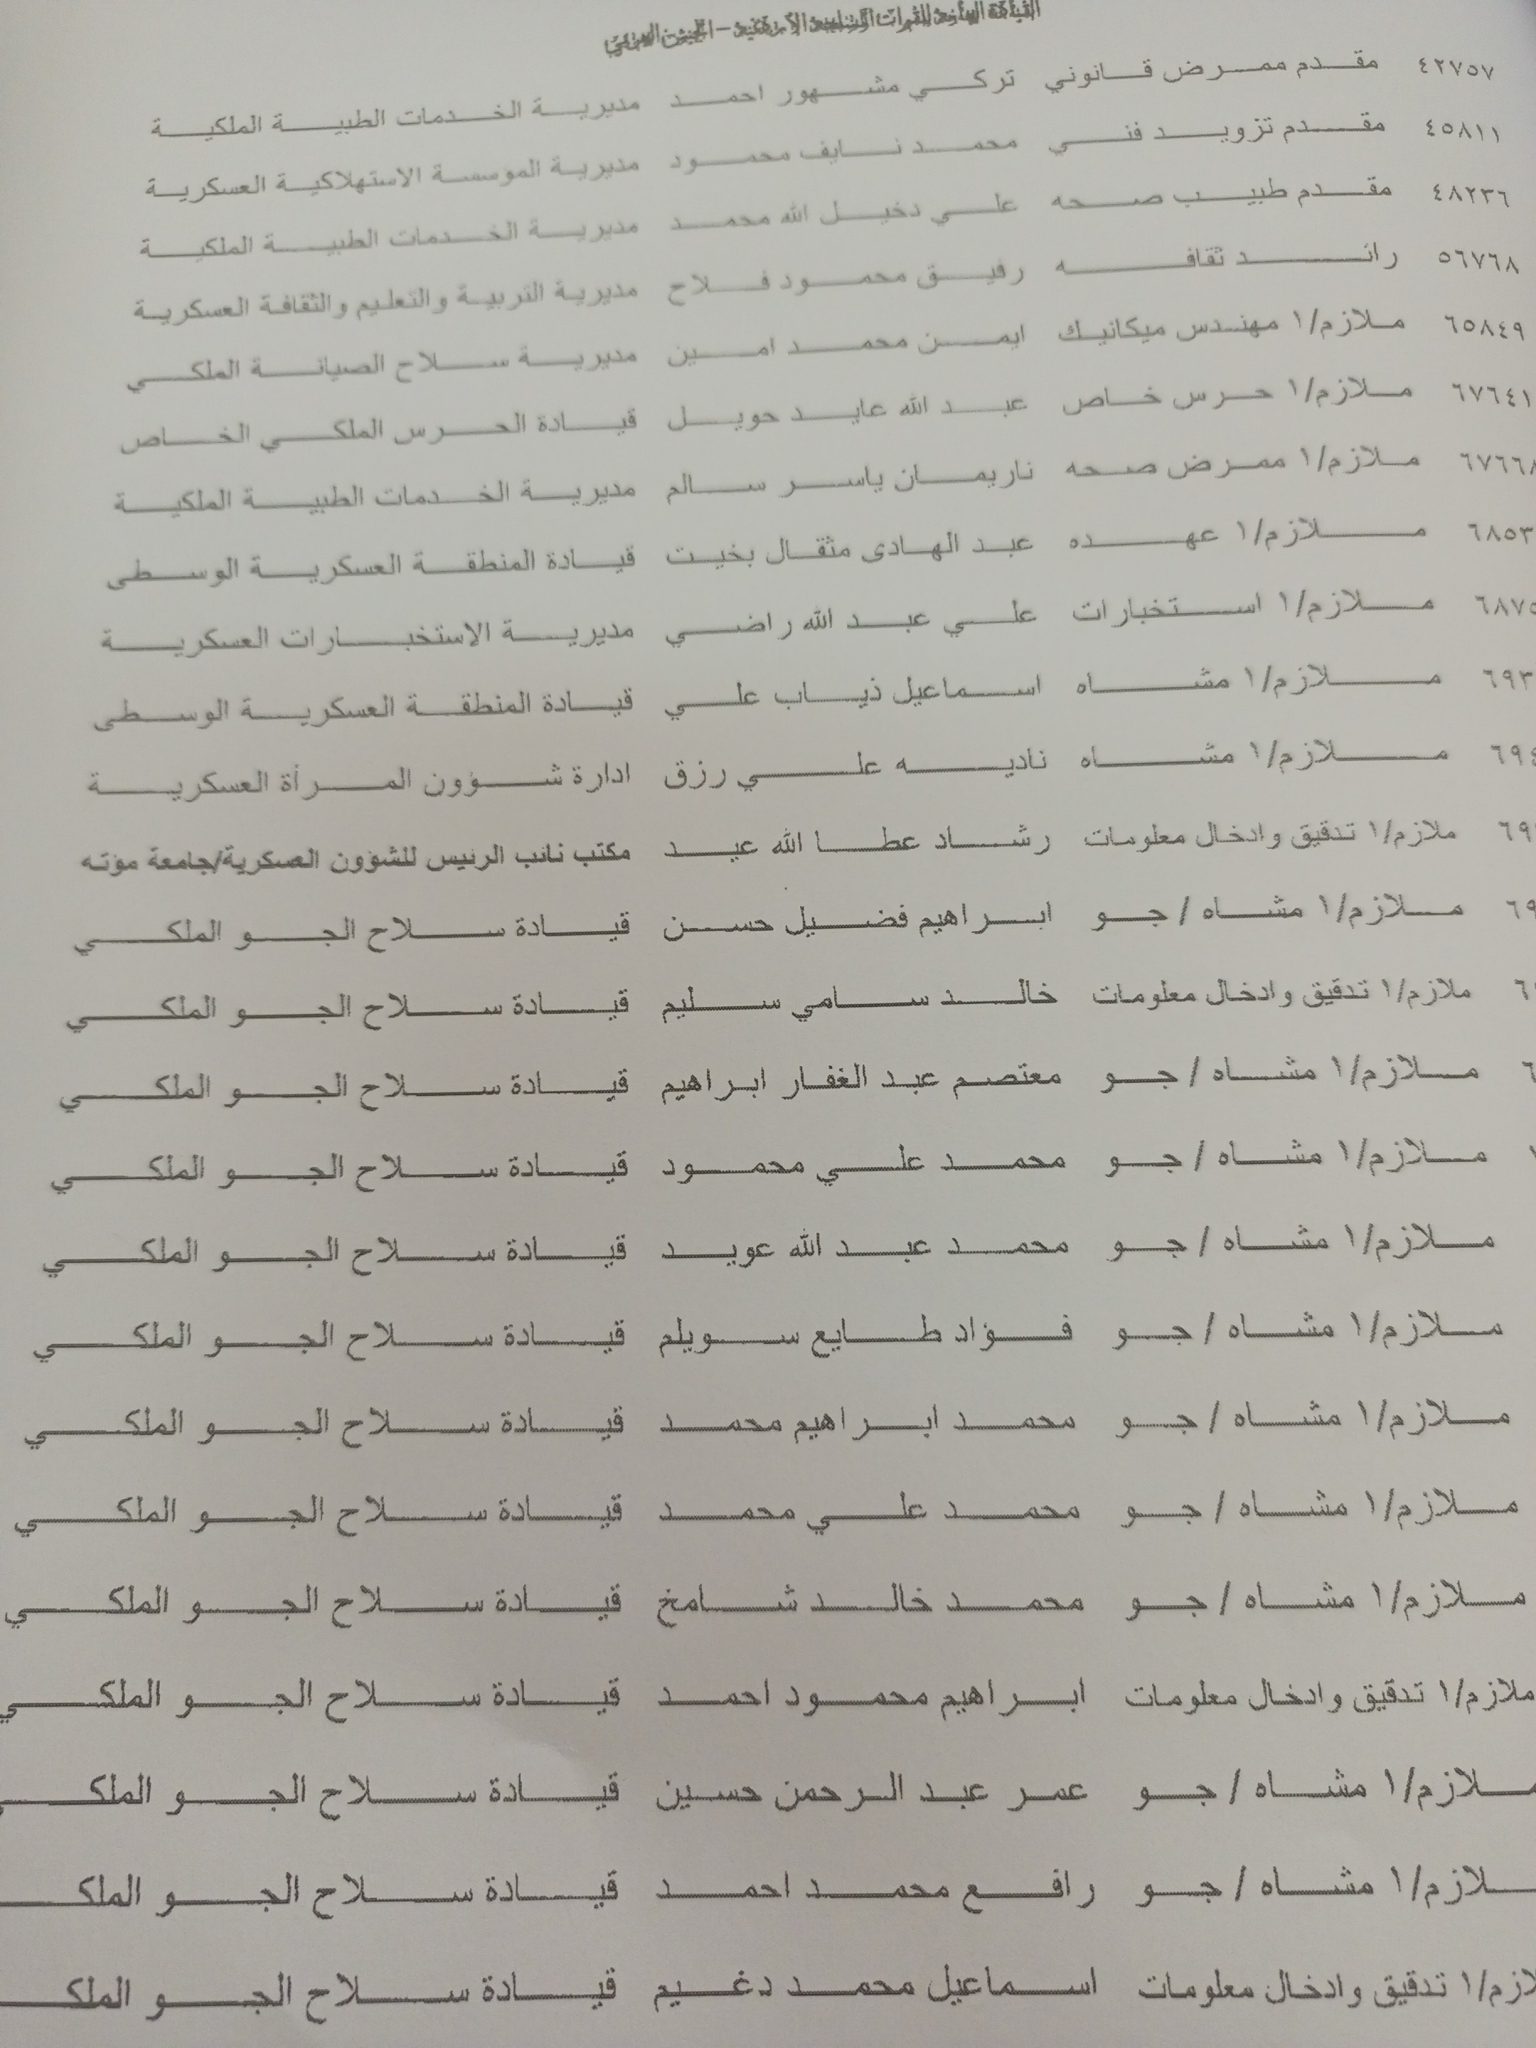 القيادة العامة للقوات المسلحة الأردنية – الجيش العربي
٤٢٧٥٧ مقدم ممرض قانوني تركي مشهور احمد مديرية الخدمات الطبية الملكية
٤٥٨١١ مقدم تزويد فني محمد نايف محمود مديرية الموسسة الاستهلاكية العسكرية
٤٨٢٣٦ مقدم طبيب صحه علي دخيل الله محمد مديرية الخدمات الطبية الملكية
٥٦٧٦٨ رائد ثقافه رفيق محمود فلاح مديرية التربية والتعليم والثقافة العسكرية
٦٥٨٤٩ ملازم/١ مهندس ميكانيك ايمن محمد امين مديرية سلاح الصيانة الملكي
٦٧٦٤١ ملازم/١ حرس خاص عبد الله عايد حويل قيادة الحرس الملكي الخاص
٦٧٦٦٨ ملازم/١ ممرض صحه ناريمان ياسر سالم مديرية الخدمات الطبية الملكية
٦٨٥٣ ملازم/١ عهده عبد الهادى مثقال بخيت قيادة المنطقة العسكرية الوسطى
٦٨٧٥ ملازم/١ استخبارات علي عبد الله راضي مديرية الاستخبارات العسكرية
٦٩٣ ملازم/١ مشاه اسماعيل ذياب علي قيادة المنطقة العسكرية الوسطى
٦٩٤ ملازم/١ مشاه ناديه علي رزق ادارة شؤون المرأة العسكرية
٦٩ ملازم/١ تدقيق وادخال معلومات رشاد عطا الله عيد مكتب نائب الرئيس للشؤون العسكرية/جامعة مؤته
٦٩ ملازم/١ مشاه / جو ابراهيم فضيل حسن قيادة سلاح الجو الملكي
٦ ملازم/١ تدقيق وادخال معلومات خالد سامي سليم قيادة سلاح الجو الملكي
٦ ملازم/١ مشاه / جو معتصم عبد الغفار ابراهيم قيادة سلاح الجو الملكي
ملازم/١ مشاه / جو محمد علي محمود قيادة سلاح الجو الملكي
ملازم/١ مشاه / جو محمد عبد الله عويد قيادة سلاح الجو الملكي
ملازم/١ مشاه / جو فؤاد طايع سويلم قيادة سلاح الجو الملكي
ملازم/١ مشاه / جو محمد ابراهيم محمد قيادة سلاح الجو الملكي
ملازم/١ مشاه / جو محمد علي محمد قيادة سلاح الجو الملكي
ملازم/١ مشاه / جو محمد خالد شامخ قيادة سلاح الجو الملكي
ملازم/١ تدقيق وادخال معلومات ابراهيم محمود احمد قيادة سلاح الجو الملكي
ملازم/١ مشاه / جو عمر عبد الرحمن حسين قيادة سلاح الجو الملكي
لازم/١ مشاه / جو رافع محمد احمد قيادة سلاح الجو الملك
لازم/١ تدقيق وادخال معلومات اسماعيل محمد دغيم قيادة سلاح الجو الملك